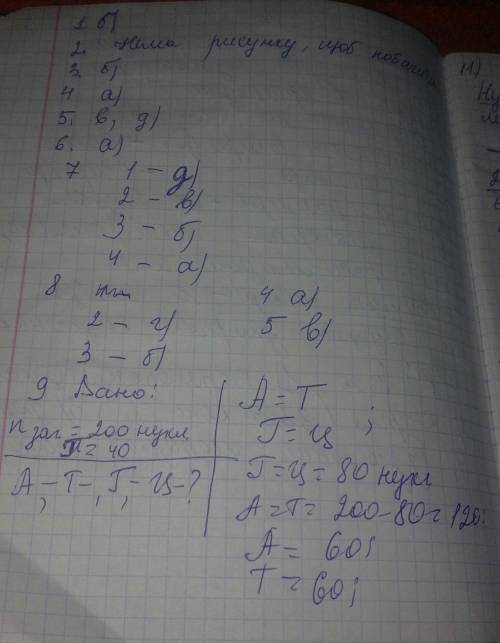 1. б)
2. Нема рисунку, щоб побачити
3. б)
4 а)
5. в, д)
6. а)
7 1 – д)
2 – в)
3 – б)
4 – а)
8
2 – г)
3 – б)
4 а)
5 в)
9 Дано:
n заг = 200 нукл
= 40
А –, Т –, Г –, Ц – ?
А = Т ;
Г = Ц
Г = Ц = 80 нукл
А = Т = 200 – 80 = 120;
А = 60;
Т = 60;
11)